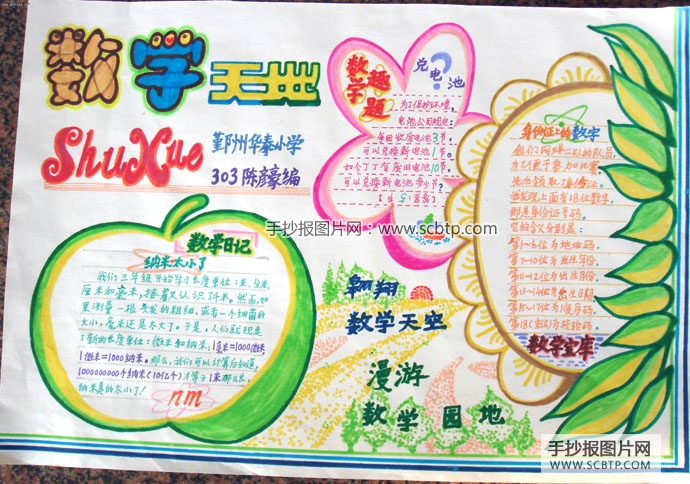 数学天地
ShuXue
鄞州华泰小学
303 陈豪编
数学趣题
兑电池
为了保护环境,
电池公司规定:
每回收废电池3节,
可以兑换新电池1节。
如今丁丁有废旧电池10节,
可以兑换新电池多少节?
手抄报图片网:www.scbtp.com
身份证上的数字
先向领取了身份证。
我发现上面有18位数字,
那是身份证号码。
它的含义分别是:
第1-6位为地址码。
第7-10位为出生年份。
第11-12位为出生月份。
第13-14位为出生日期
第15-17位为顺序码。
第18(末)位为校验码。
数学宝库
数学日记
纳米太小了
我们三年级开始学习长度单位:米、分米、
厘米和毫米,接着又认识了千米。然而,如
果测量一根头发的粗细,或者一个细菌的
大小,毫米还是太大了。于是,人们就规定
了新的长度单位:微米和纳米,1毫米=1000微米,
1微米=1000纳米。那么,我们可以计算后知道,
1000000000个纳米(10亿个)才等于1米那么长。
纳米真的太小了!
nm
翱翔
数学天空
漫游
数学园地
手抄报图片网
WWW.SCBTP.COM